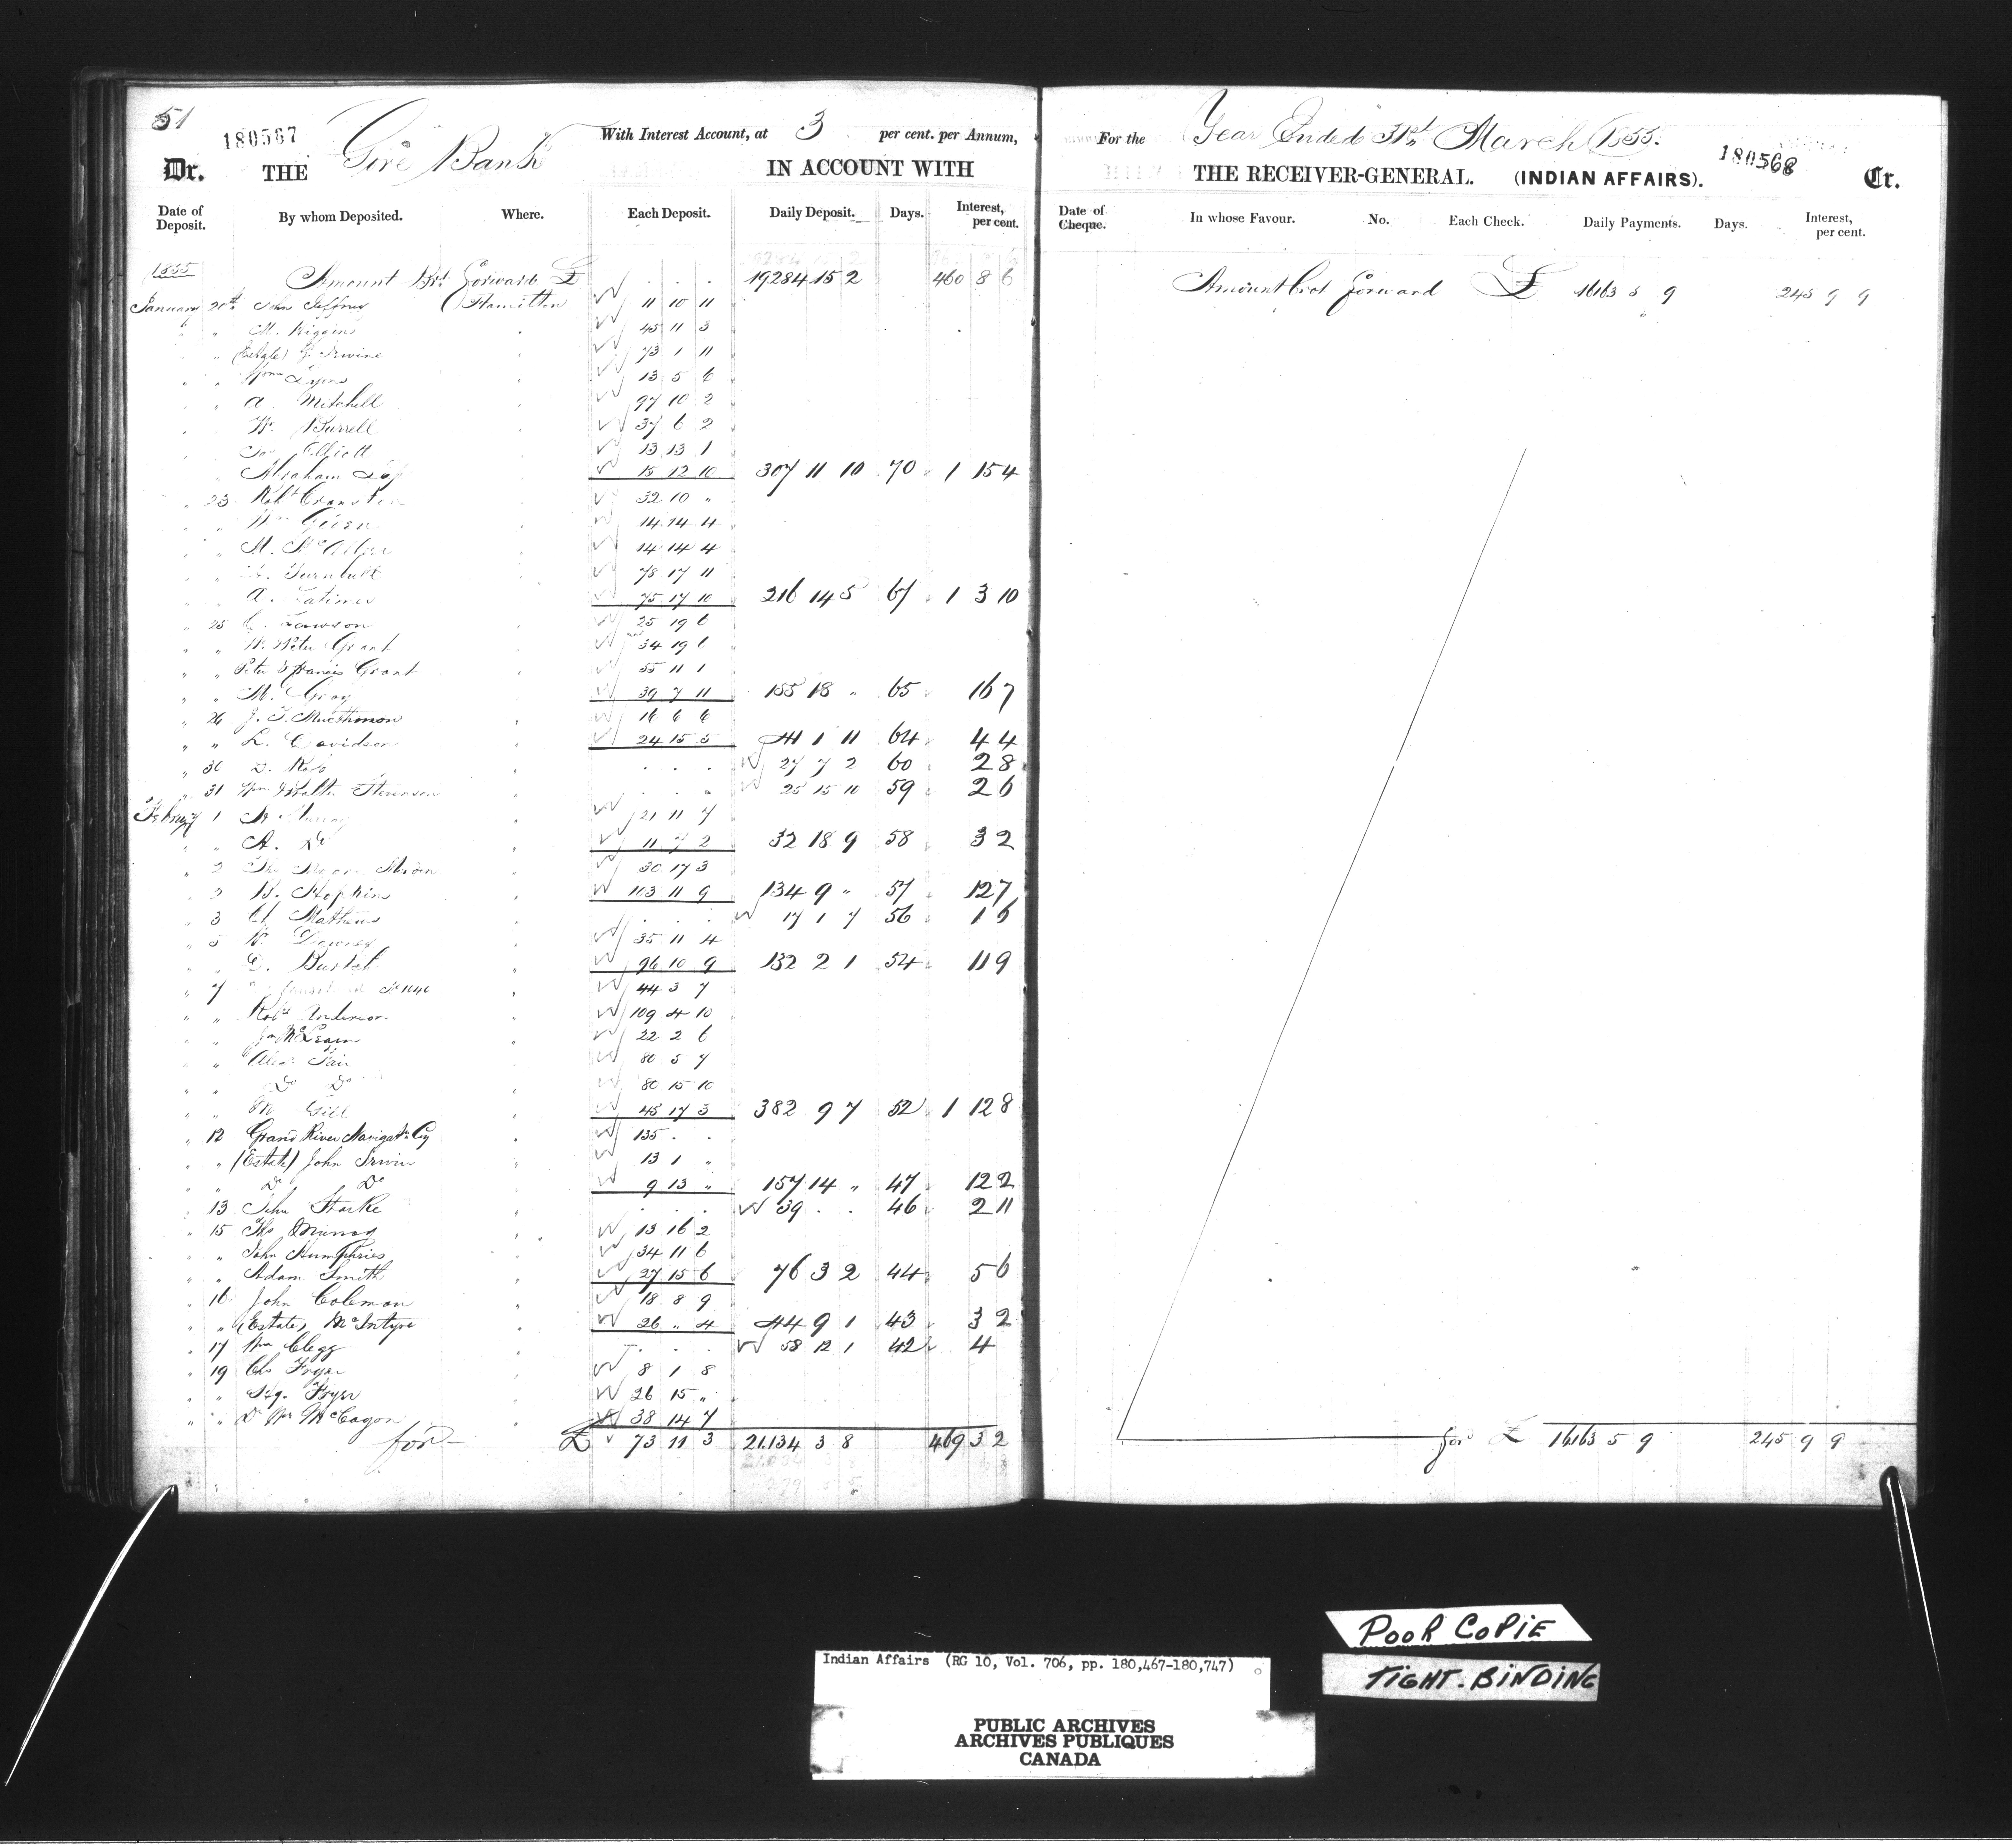 51
180567
Dr. THE Gore Bank With Interest Account, at 3 per cent. per Annum, IN ACCOUNT WITH
Date of Deposit. By whom Deposited. Where. Each Deposit. Daily Deposit. Days. Interest, per cent.
1855 Amount Brt. Forward £ . . . 19284 15 2 460 8 6
January 20th John Jeffrey Hamilton 11 10 11
" M. Higgins 45 11 3
" (Estate) J. Irwine 73 1 11
" " Wm Lyons 13 5 6
" A. Mitchell 97 10 2
" W. Burrell 37 6 2
" Elliott 13 13 1
" Abraham 15 12 10 307 11 10 70 1 15 4
" 23 Robt Cranston 32 10 "
" " Wm Given 14 14 4
" " M. 14 14 4
" " Turnbull 78 17 11
" " A. Latimer 75 17 10 216 14 5 67 1 3 10
" 25 Lawson 25 19 6
" " W. Peter Grant 34 19 6
" " Peter & Francis Grant 55 11 1
" " M. Gray 39 7 11 155 18 " 65 16 7
" 26 J. T. 16 6 6
" " L. Davidson 24 15 5 41 1 11 64 4 4
" 30 D. Ross . . . 27 7 2 60 2 8
" 31 Wm Walter Stevenson . . . 25 15 10 59 2 6
Febray 1 Murray 21 11 7
" " A. Do 11 7 2 32 18 9 58 3 2
" 2 30 17 3
" 2 Hopkins 103 11 9 134 9 " 57 12 7
" 3 Mathews . . . 17 1 7 56 1 6
" 5 W. Downey 35 11 4
" " 96 10 9 132 2 1 54 11 9
" 7 44 3 7
" " Robt Anderson 109 4 10
" " 22 2 6
" " Alexr Fair 80 5 7
" " Do Do 80 15 10
" " M Gill 45 17 3 382 9 7 52 1 12 8
" 12 Grand River Navigatn Coy 135 . .
" " (Estate) John Irwin 13 1 "
" " Do Do 9 13 " 157 14 " 47 12 2
" 13 John Starke . . . 39 . . 46 2 11
" 15 Ths Murray 13 16 2
" " John Humphries 34 11 6
" " Adam Smith 27 15 6 76 3 2 44 5 6
" 16 John Coleman 18 8 9
" " (Estate) McIntyre 26 " 4 44 9 1 43 3 2
" 17 Wm Clegg . . . 58 12 1 42 4
" 19 Chs Fryer 8 1 8
" " Fryer 26 15 "
" " Dr Wm McCagon 38 14 7
for £ 73 11 3 21.134 3 8 469 3 2
For the Year Ended 31st March 1855.
180568
THE RECEIVER-GENERAL. (INDIAN AFFAIRS). Cr.
Date of Cheque. In whose Favour. No. Each Check. Daily Payments. Days. Interest, per cent.
Amount brot forward £ 16163 5 9 245 9 9
for £ 16163 5 9 245 9 9
POOR COPIE
TIGHT-BINDING
Indian Affairs (RG 10, Vol. 706, pp. 180,467-180,747)
PUBLIC ARCHIVES
ARCHIVES PUBLIQUES
CANADA